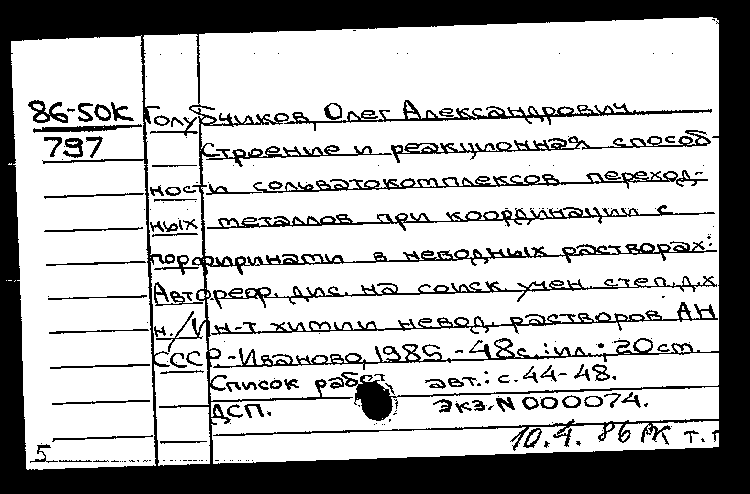 86-50К Голубчиков, Олег Александрович
797 Строение и реакционная способ-
ности сольватокомплексов переход-
ных металлов при координации с
порфиринами в неводных растворах:
Автореф. дис. на соиск учен. степ. д.х
н. / Ин-т химии невод. растворов АН
СССР.-Иваново, 1985.-48с.:ил.; 20см.
Список работ авт.: с.44-48.
ДСП. Экз. N 000074.
10.4. 86
5